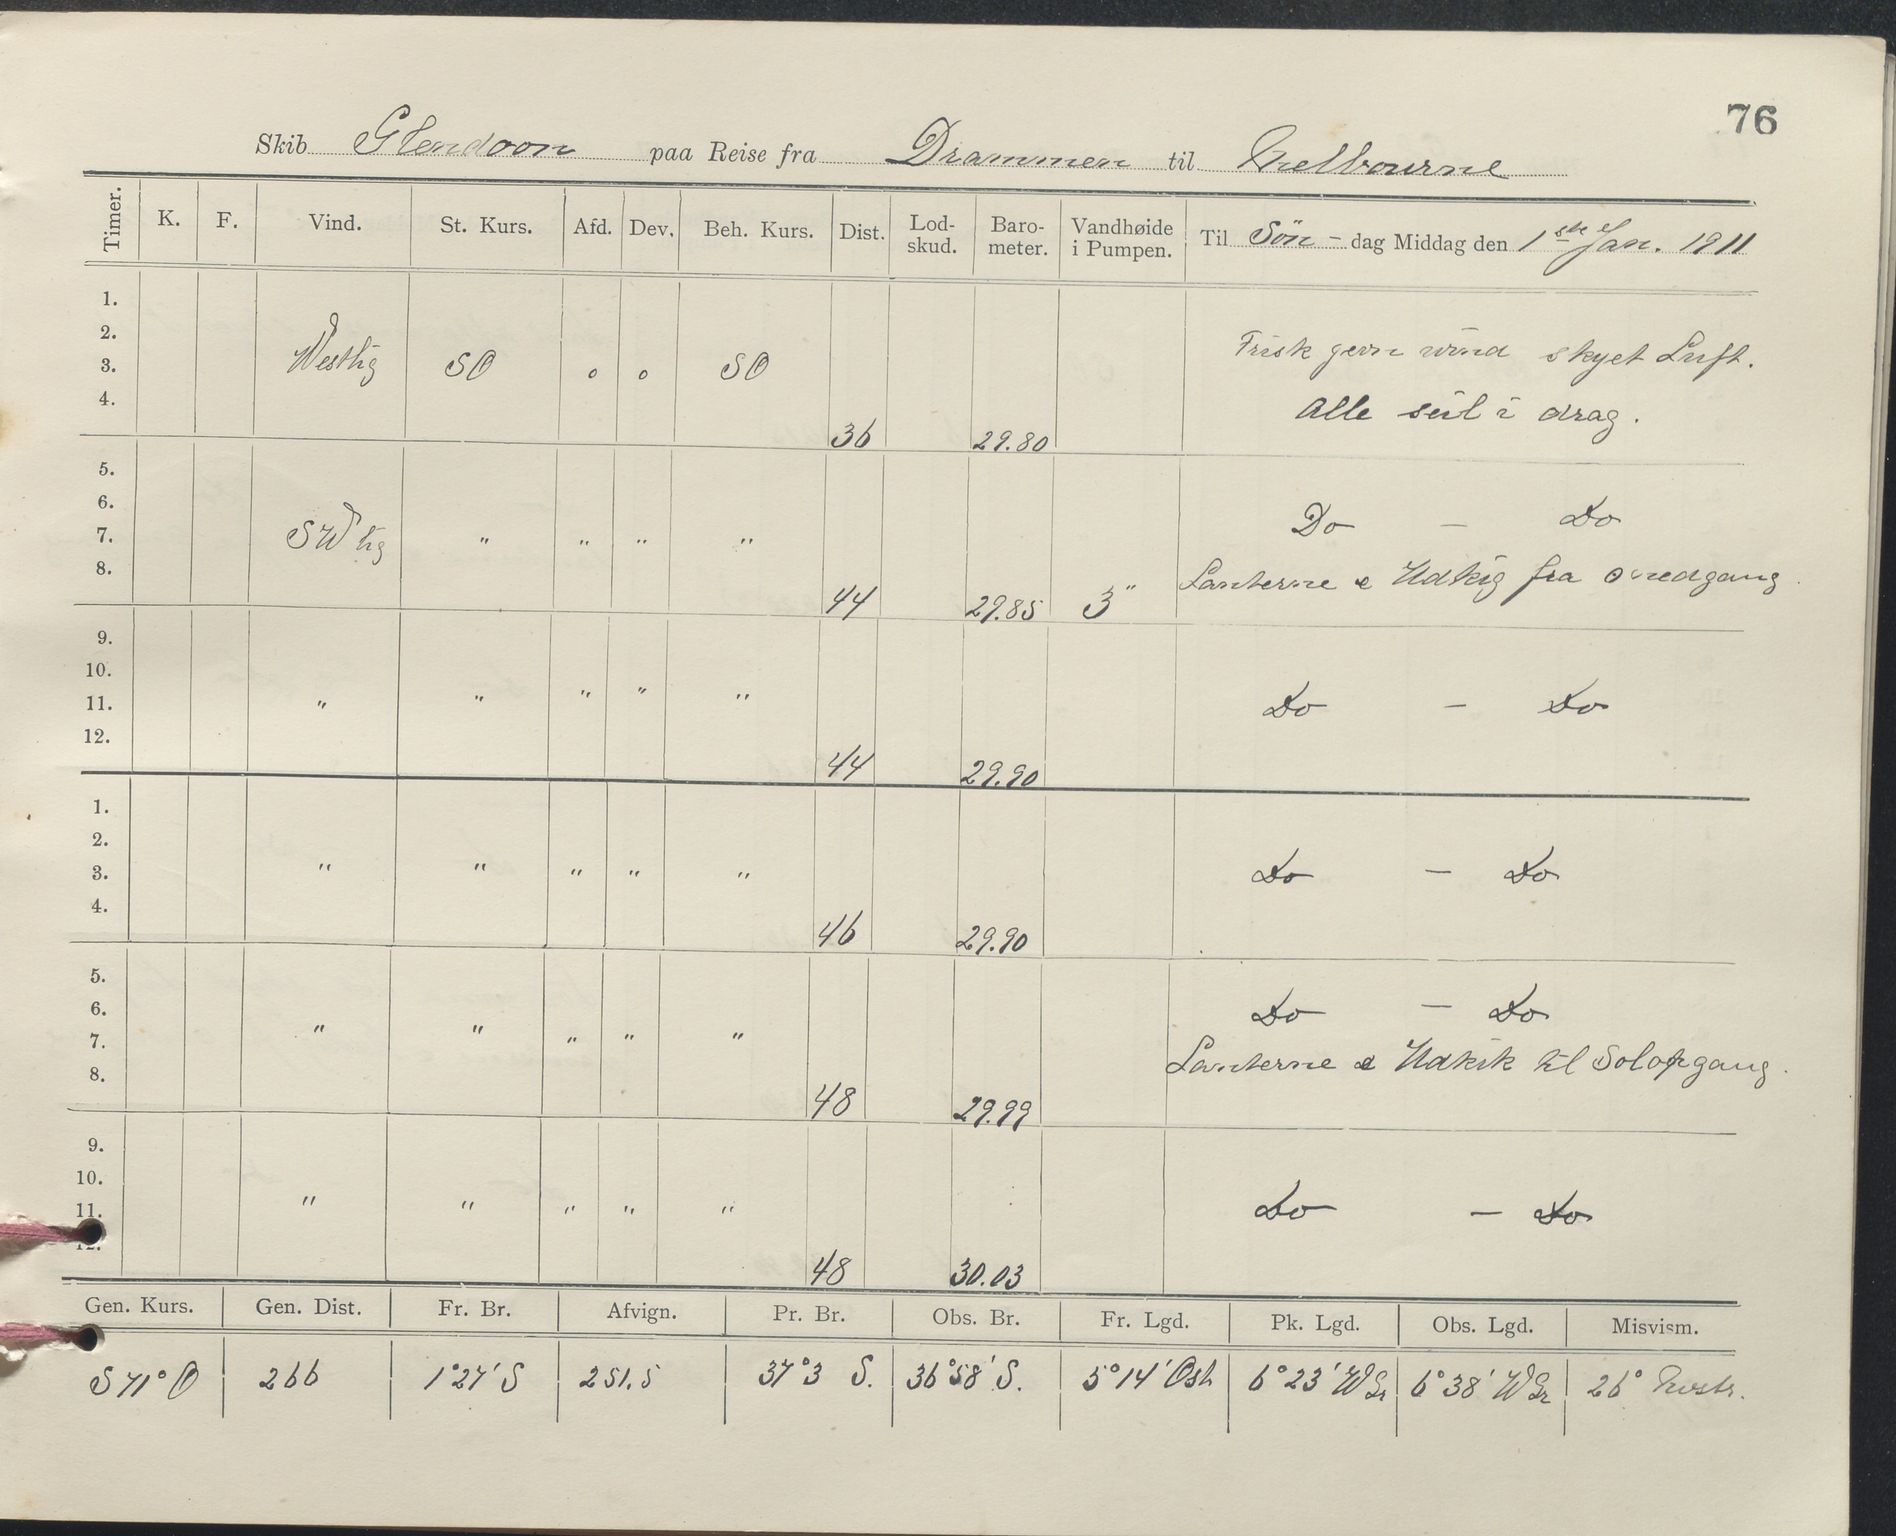 76
Skib Glendoon paa Reise fra Drammen til Melbourne
Timer. K. F. Vind. St. Kurs. Afd. Dev. Beh. Kurs. Dist. Lod-skud. Baro-meter. Vandhøide i Pumpen. Til Søn-dag Middag den 1ste Jan. 1911
1.
2.
3. Westlig SO o o SO Frisk jevn wind skyet Luft.
4. 36 29.80 Alle seil i drag.
5.
6. Do — Do
7. SW lig " " " "
8. 44 29.85 3" Lanterne e Udkig fra
9.
10.
11. " " " " " Do — Do
12. 44 29.90
1.
2.
3. " " " " " Do — Do
4. 46 29.90
5.
6. Do — Do
7. " " " " " Lanterne e Udkik til Solopgang.
8. 48 29.99
9.
10.
11. " " " " " Do — Do
12. 48 30.03
Gen. Kurs. Gen. Dist. Fr. Br. Afvign. Pr. Br. Obs. Br. Fr. Lgd. Pk. Lgd. Obs. Lgd. Misvism.
S 71° O 266 1°27' S 251.5 37°3 S. 36°58' S. 5°14' Ost 6°23' W Gr 6°38' W Gr 26°